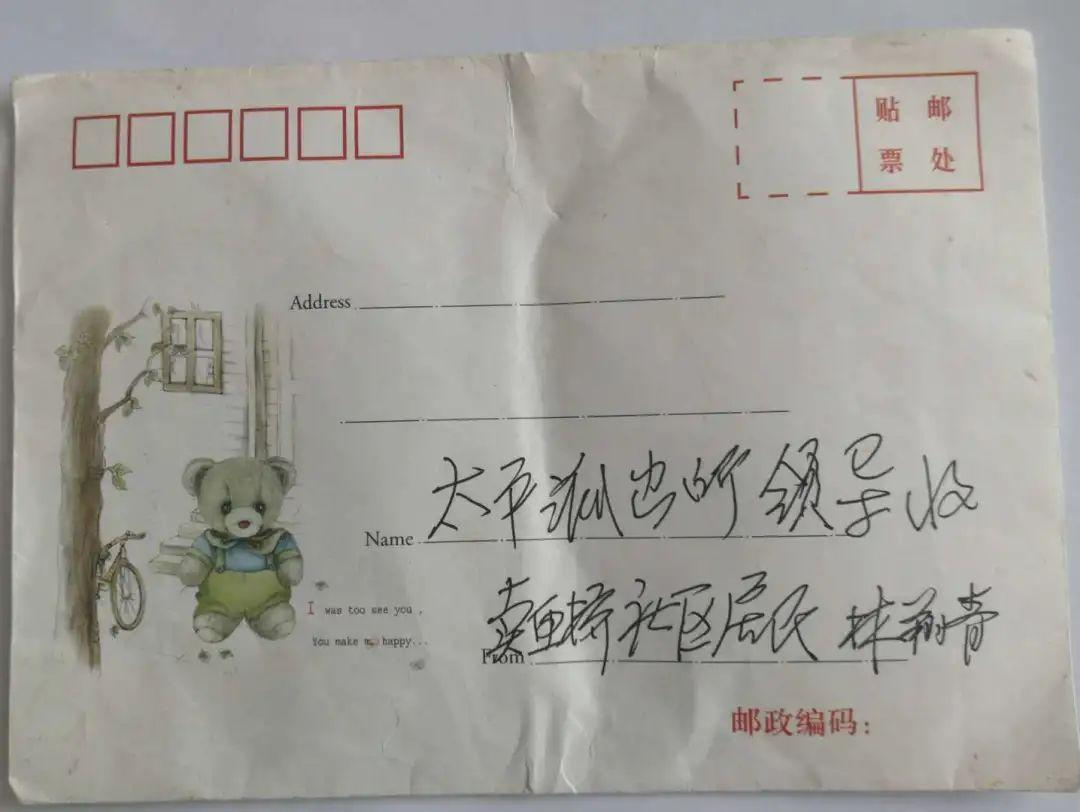 贴 邮
票 处
Address
太平派出所领导收
Name
I was too see you ,
You make me happy...
卖鱼桥社区居民 林
From
邮政编码: